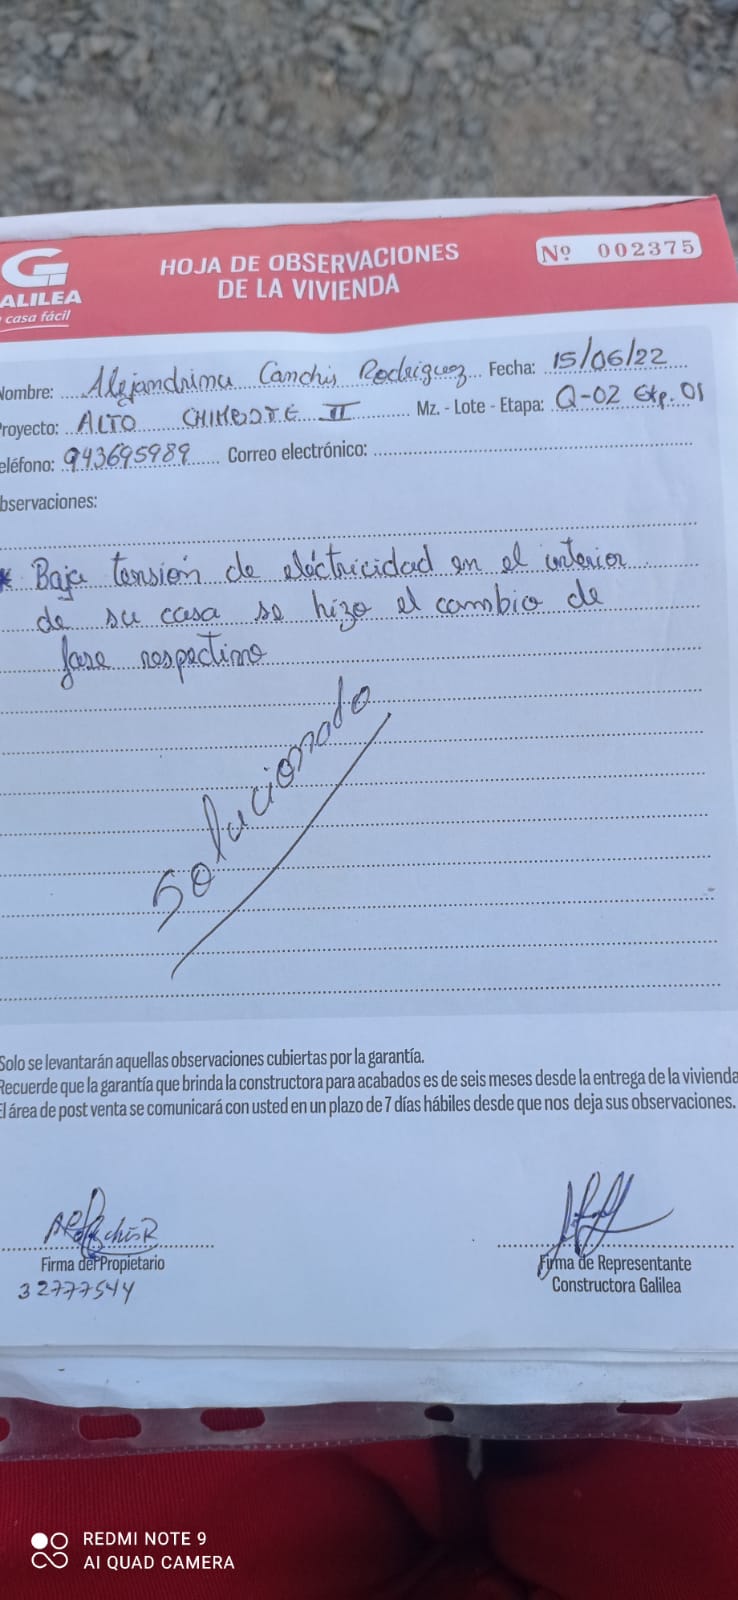 ALILEA
casa fácil
HOJA DE OBSERVACIONES
DE LA VIVIENDA
Nº 002375
Nombre: Alejandrina Canchis Rodriguez Fecha: 15/06/22
royecto: ALTO CHIMBOTE II Mz. - Lote - Etapa: Q-02 Etp. 01
eléfono: 943695989 Correo electrónico:
bservaciones:
* Baja tensión de eléctricidad en el interior
de su casa se hizo el cambio de
fase respectimo
Solucionado
Solo se levantarán aquellas observaciones cubiertas por la garantía.
Recuerde que la garantía que brinda la constructora para acabados es de seis meses desde la entrega de la vivienda
El área de post venta se comunicará con usted en un plazo de 7 días hábiles desde que nos deja sus observaciones.
Firma del Propietario
32777544
Firma de Representante
Constructora Galilea
REDMI NOTE 9
AI QUAD CAMERA